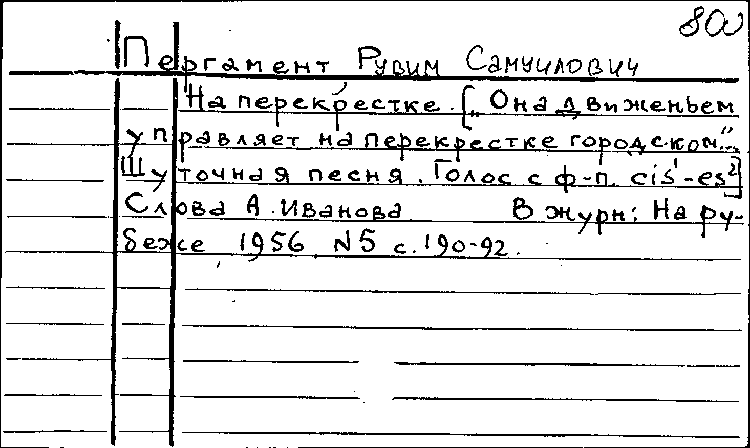 800
Пергамент Рувим Самуилович
На перекрестке. [„Она движеньем
управляет на перекрестке городском"..
Шуточная песня. Голос с ф-п. cis¹-es²]
Слова А. Иванова В журн: На ру-
беже 1956 N5 с.190-92.